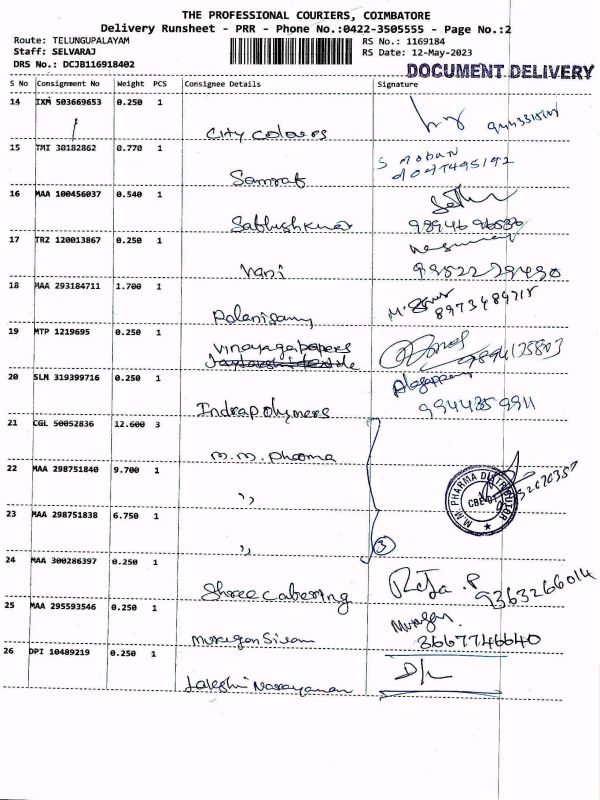 THE PROFESSIONAL COURIERS, COIMBATORE
Delivery Runsheet - PRR - Phone No.:0422-3505555 - Page No.:2
Route: TELUNGUPALAYAM
RS No.: 1169184
Staff: SELVARAJ
RS Date: 12-May-2023
DRS No.: DCJB116918402
DOCUMENT DELIVERY
S No Consignment No Weight PCS Consignee Details Signature
14 IXM 503669653 0.250 1
City Colours
15 TMI 30182862 0.770 1
S Mohan
Samrat
16 MAA 100456037 0.540 1
Sathishkumar
98946 96536
17 TRZ 120013867 0.250 1
Vani
99522 79490
18 MAA 293184711 1.700 1
Palanisamy
8973484715
19 MTP 1219695 0.250 1
Vinayaga papers
9894135803
20 SLM 319399716 0.250 1
Alagappan
Indrapolymers
9944359911
21 CGL 50052836 12.600 3
M.M. Pharma
22 MAA 298751840 9.700 1
,,
M.M. PHARMA DISTRIBUTOR
CBE-01
23 MAA 298751838 6.750 1
,,
3
24 MAA 300286397 0.250 1
Raja . P
Shree Catering
9363266014
25 MAA 295593546 0.250 1
Murugan
Murugan Sivam
8667746640
26 DPI 10489219 0.250 1
Lakshmi Narayanan